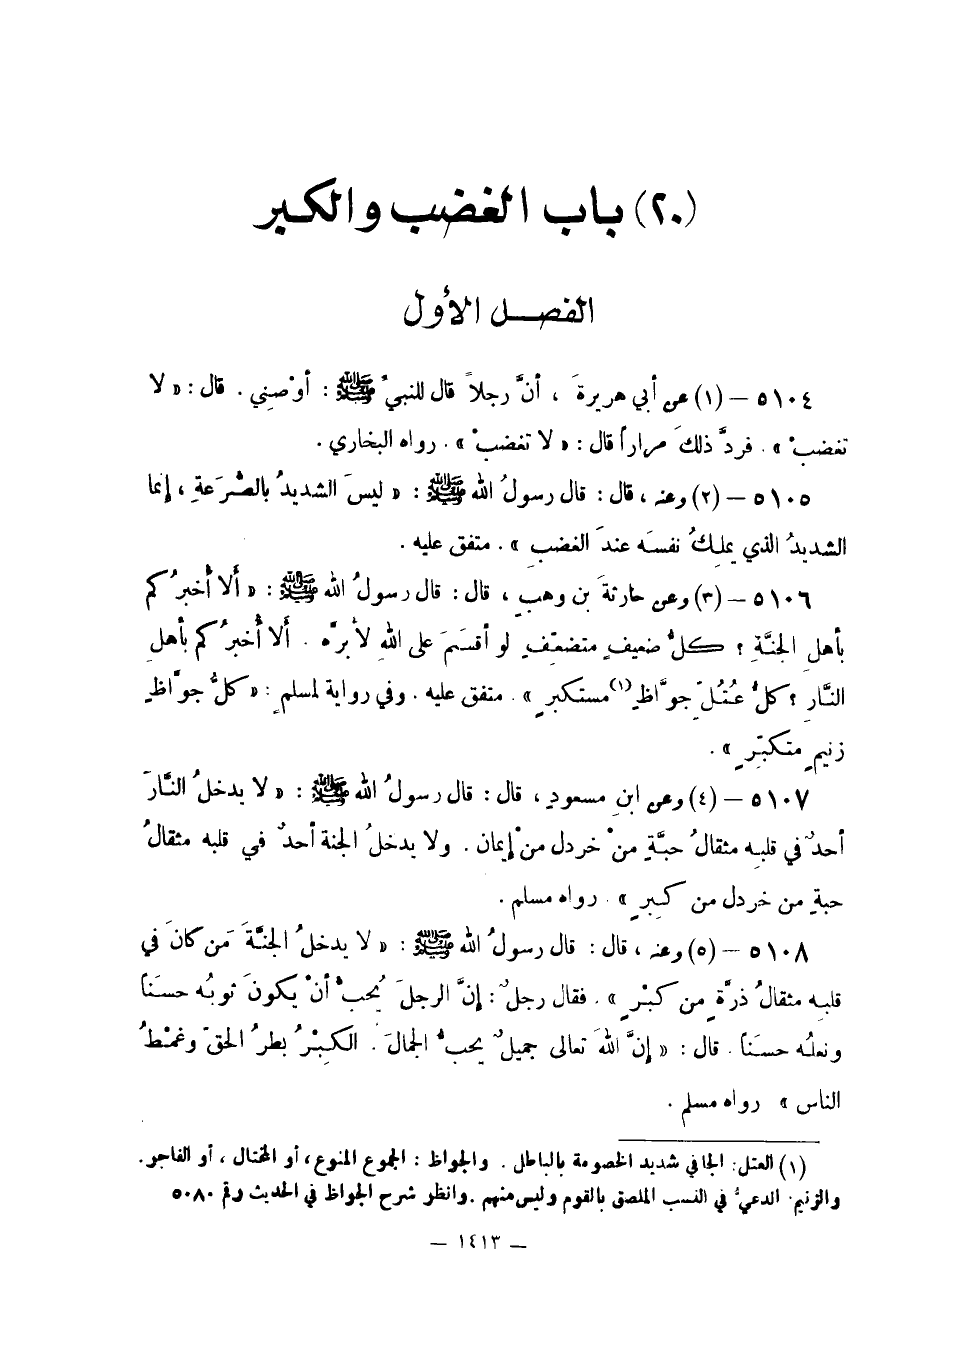 (٢٠) باب الغضب والكبر
الفصل الأول
٥١٠٤ – (١) عن أبي هريرةَ ، أنَّ رجلاً قال للنبيِّ ﷺ : أوْصِني . قال : « لا
تغضبْ » . فردَّ ذلكَ مراراً قال : « لا تغضبْ » . رواه البخاري .
٥١٠٥ – (٢) وعنه ، قال : قال رسولُ الله ﷺ : « ليسَ الشديدُ بالصُّرَعةِ ، إنما
الشديدُ الذي يملِكُ نفسَه عندَ الغضبِ » . متفق عليه .
٥١٠٦ – (٣) وعن حارثةَ بن وهبٍ ، قال : قال رسولُ الله ﷺ : « أَلا أُخبرُكم
بأهلِ الجنَّةِ ؟ كلُّ ضعيفٍ متضعّفٍ لو أقسَمَ على اللهِ لأبرَّه . أَلا أُخبرُكم بأهلِ
النَّارِ ؟ كلُّ عُتُلّ جوَّاظٍ (١) مستكبرٍ » . متفق عليه . وفي رواية لمسلمٍ : « كلُّ جوَّاظٍ
زنيمٍ متكبّرٍ » .
٥١٠٧ – (٤) وعن ابنِ مسعودٍ ، قال : قال رسولُ الله ﷺ : « لا يدخلُ النَّارَ
أحدٌ في قلبِه مثقالُ حبَّةٍ منْ خردل منْ إيمان . ولا يدخلُ الجنة أحدٌ في قلبه مثقالُ
حبةٍ من خردل من كِبرٍ » . رواه مسلم .
٥١٠٨ – (٥) وعنه ، قال : قال رسولُ الله ﷺ : « لا يدخلُ الجنَّةَ مَن كانَ في
قلبِه مثقالُ ذرَّةٍ من كبْرٍ » . فقال رجلٌ : إنَّ الرجلَ يُحبُّ أنْ يكونَ ثوبُه حسَناً
ونعلُه حسَناً . قال : « إنَّ اللهَ تعالى جميلٌ يحبُّ الجمالَ . الكِبْرُ بطرُ الحقّ وغمْطُ
الناس » رواه مسلم .
(١) العتل : الجافي شديد الخصومة بالباطل . والجواظ : الجموع المنوع، أو المختال ، أو الفاجر .
والزنيم . الدعيُّ في النسب الملصق بالقوم وليس منهم . وانظر شرح الجواظ في الحديث رقم ٥٠٨٠
– ١٤١٣ –